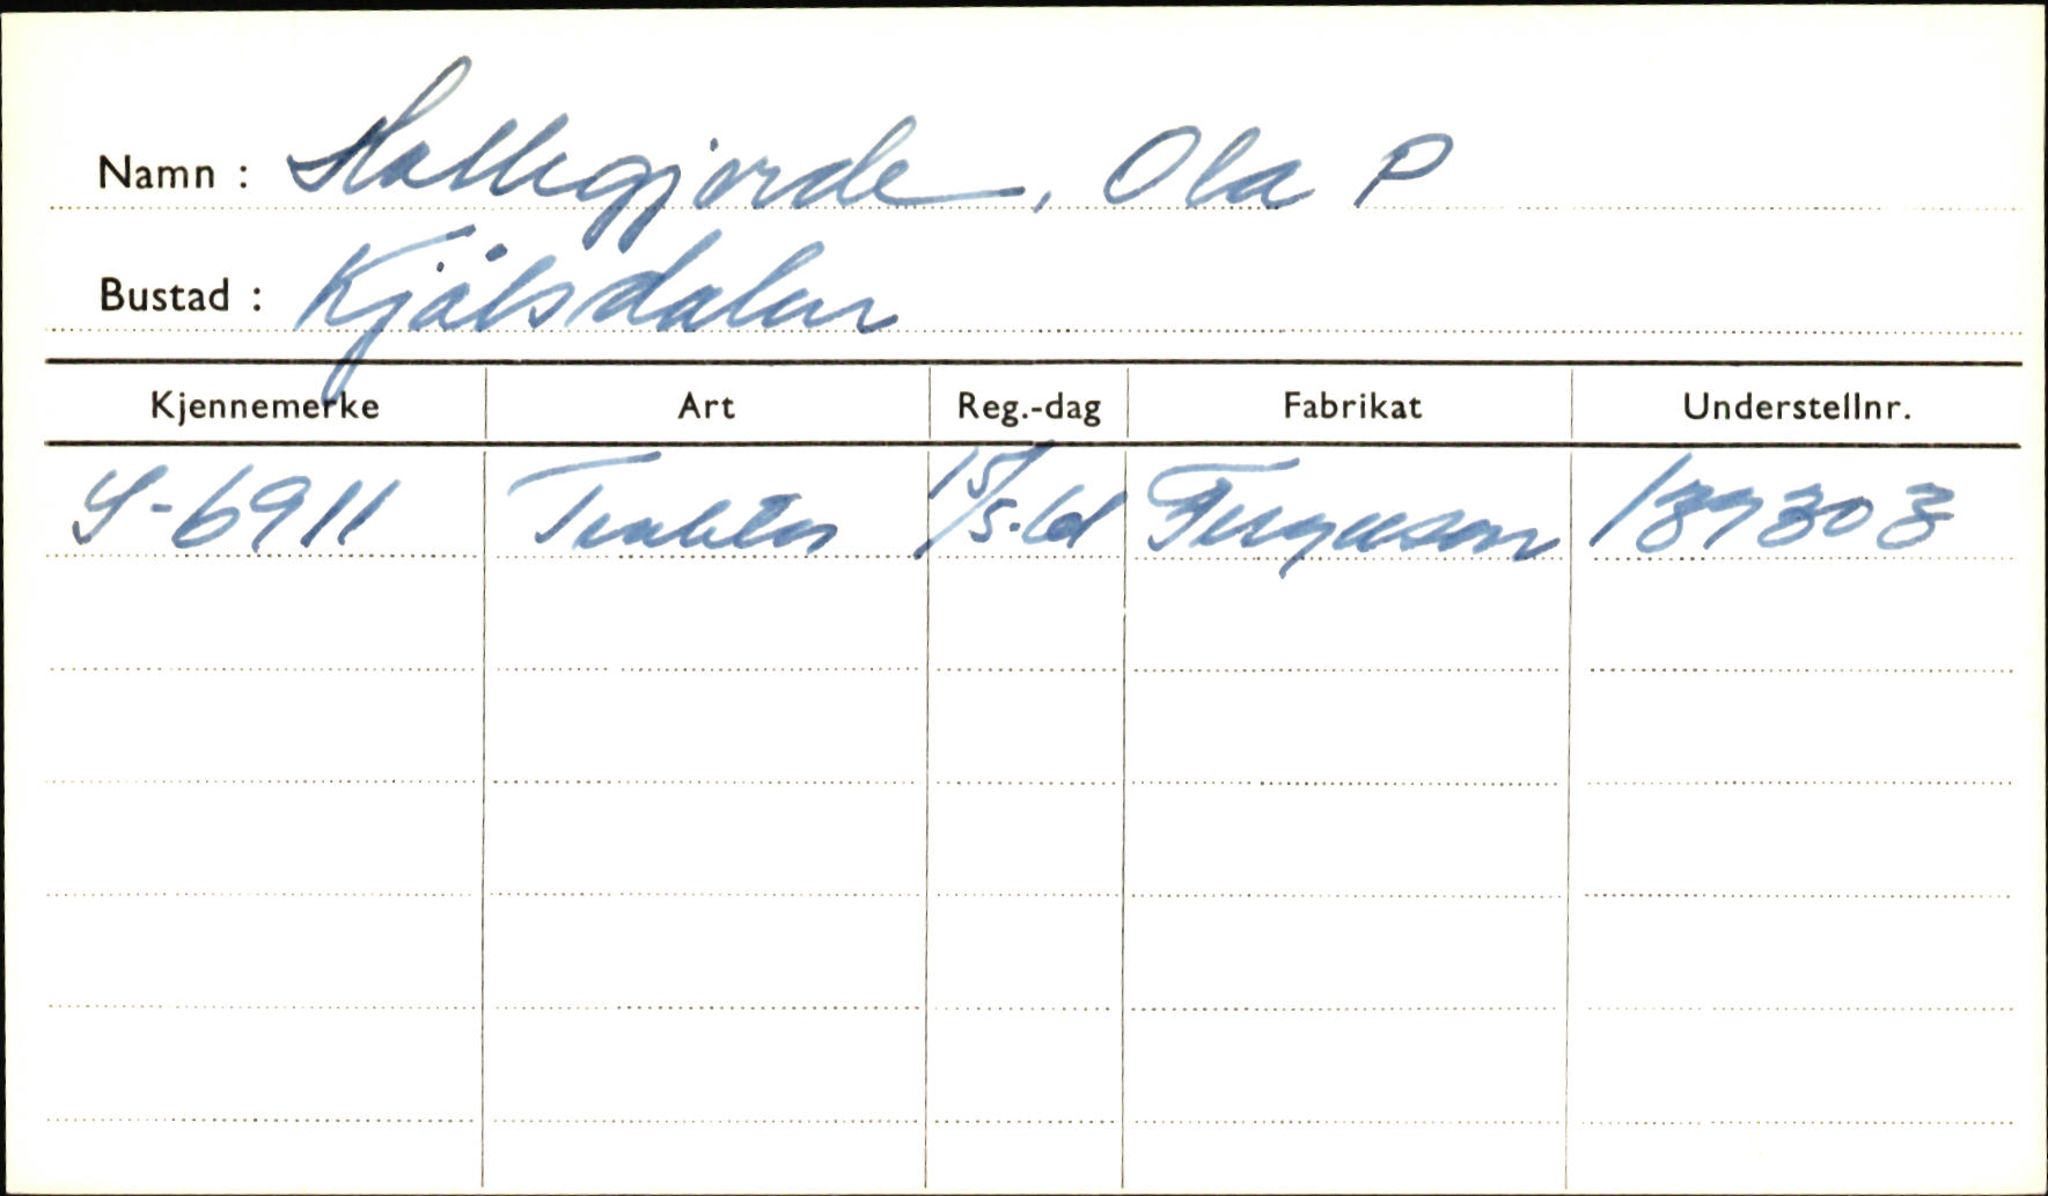 Namn : Hallegjerde, Ola P
Bustad : Kjølsdalen
Kjennemerke Art Reg.-dag Fabrikat Understellnr.
S-6911 Traktor 15/5-61 Ferguson 137303